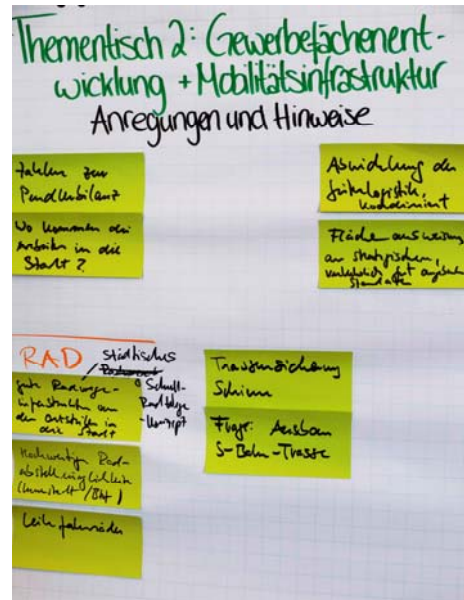 Thementisch 2: Gewerbeflächenent-
wicklung + Mobilitätsinfrastruktur
Anregungen und Hinweise
Zahlen zur
Pendlerbilanz
Wo kommen die
Arbeiter in die
Stadt?
Abwicklung der
Güterlogistik,
koordiniert
Flächenausweisung
an strategischen,
verkehrlich gut
Standorten
RAD
städtisches
Schnell-
Radwege
-konzept
gute Radwege-
infrastruktur aus
den Ortsteilen in
die Stadt
Hochwertige Rad-
abstellmöglichkeiten
Leihfahrräder
Trassensicherung
Schiene
Frage: Ausbau
S-Bahn-Trasse